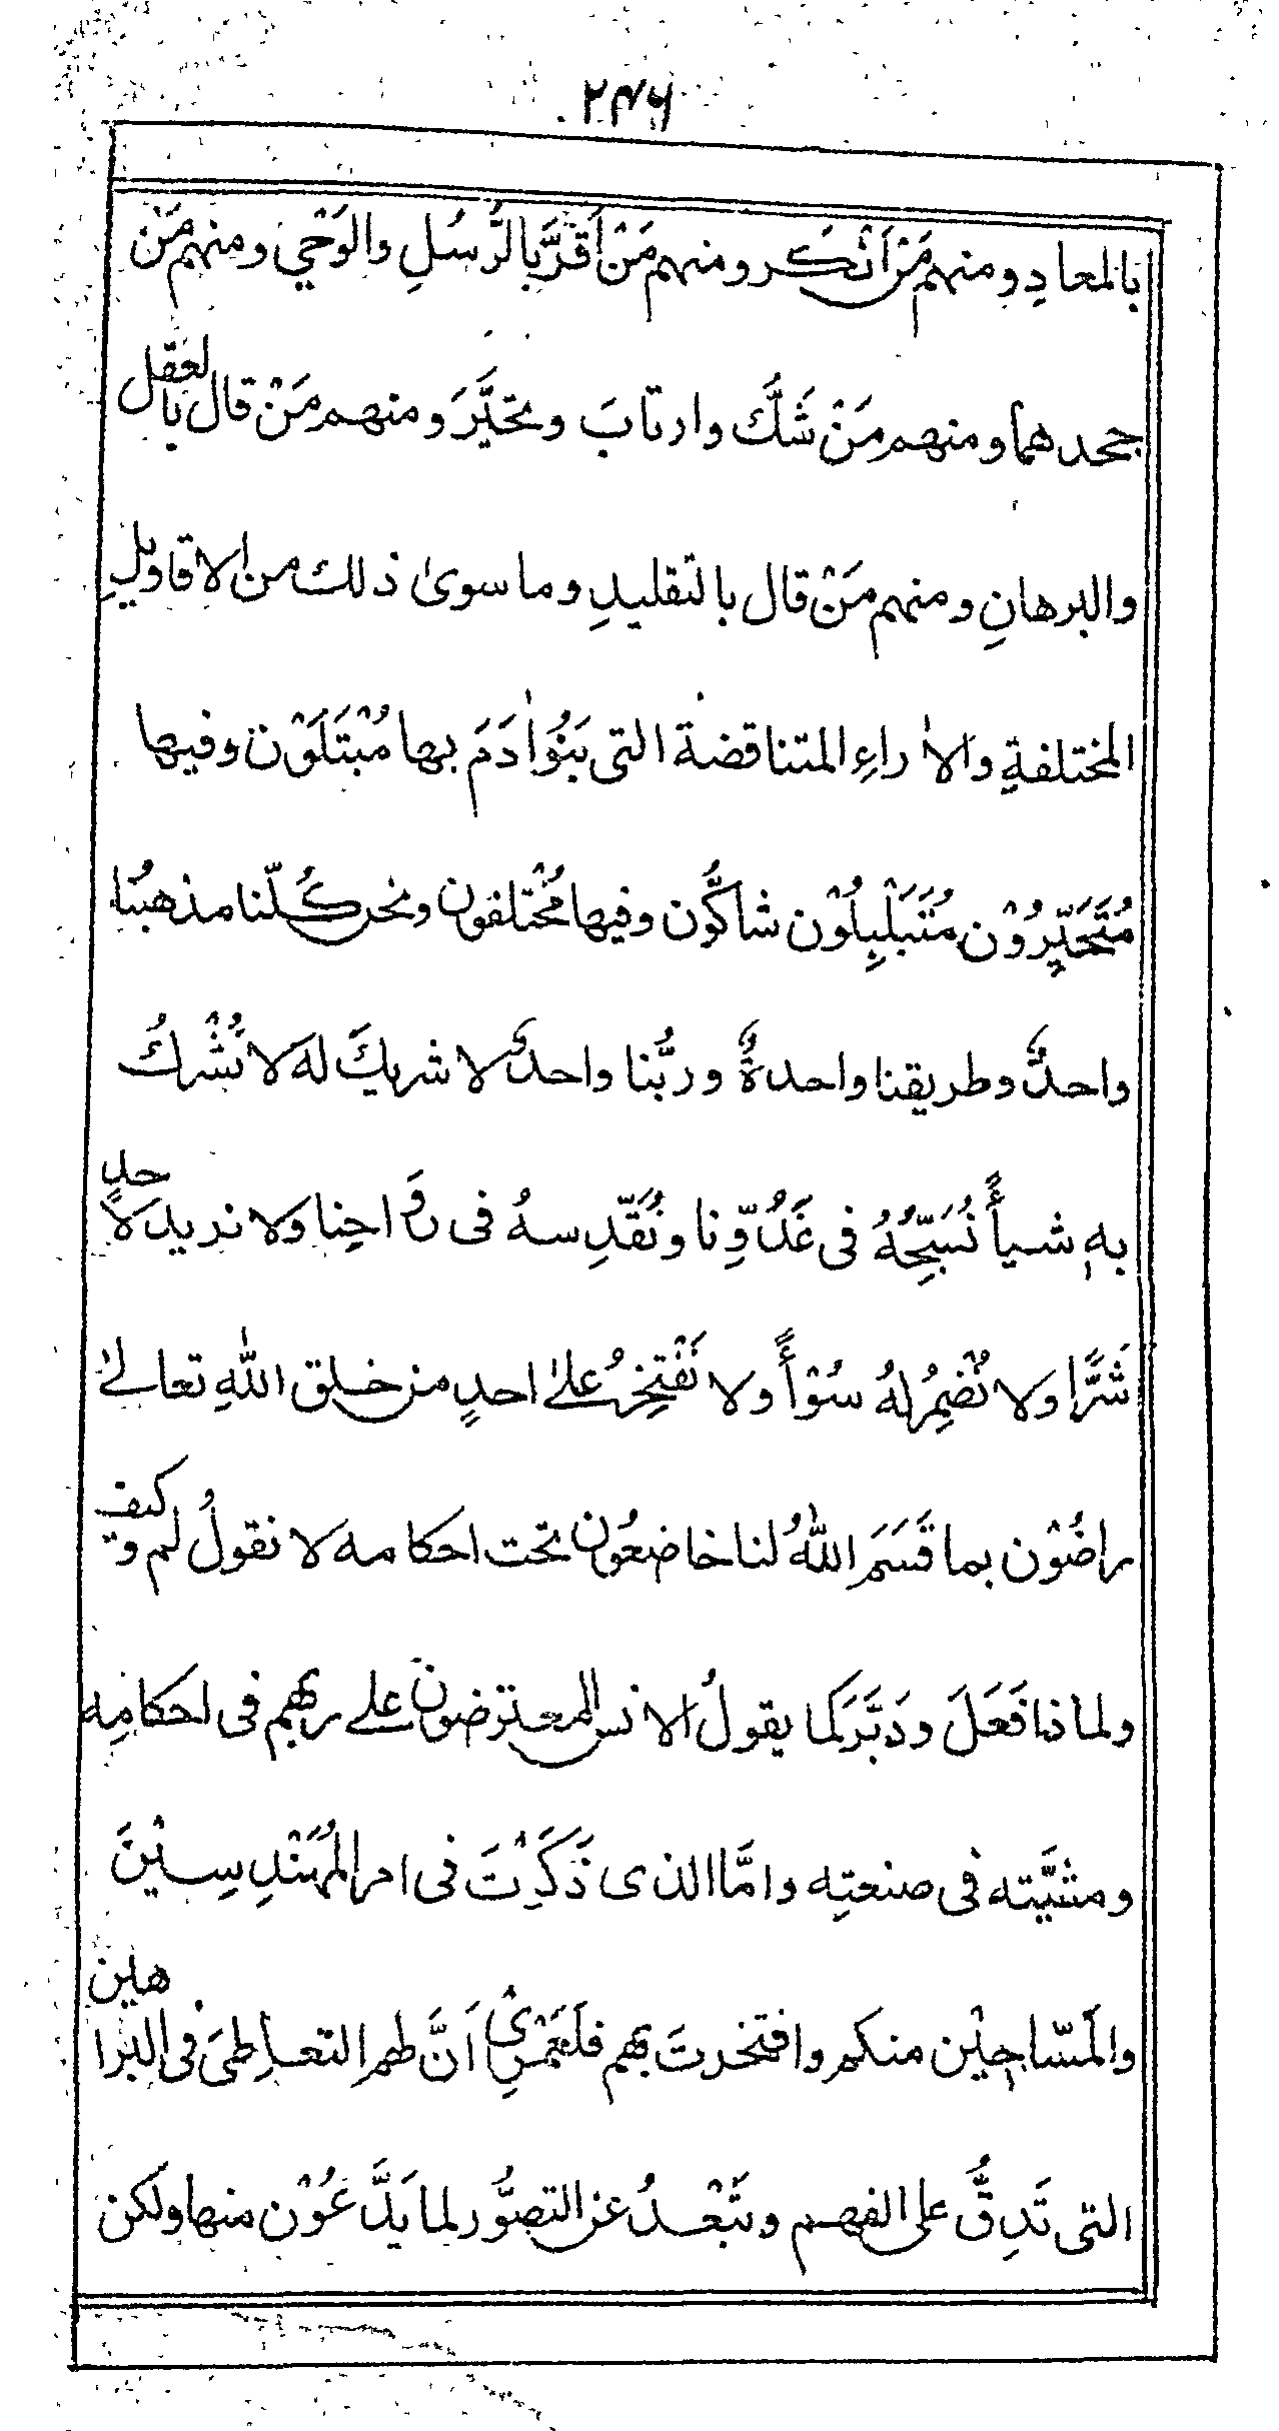 ٢٤٦
بالمعادِ ومنهم مَنْ اَنْكر ومنهم مَنْ اَقَرَّ بالرُّسُلِ والوَحْيِ ومنهم مَنْ
جحدهما ومنهم مَنْ شَكَّ وارتابَ وتحَيَّرَ ومنهم مَنْ قال بالعقل
والبرهانِ ومنهم مَنْ قال بالتقليدِ وما سوىٰ ذلك من الاقاويلِ
المختلفةِ والاٰراءِ المتناقضة التى بَنُوْاٰدَمَ بها مُبْتَلَوْن وفيها
مُتَحَيِّرُوْن مُتَبَلْبِلُوْن شاكُّون وفيها مُخْتلفون ونحن كُلّنا مذهبُنا
واحدٌ وطريقنا واحدةٌ وربُّنا واحدٌ لا شريكَ لهَ لا نُشْركُ
بهٖ شيأً نُسَبِّحُهُ فى غَدُوِّنا ونُقَدِّسهُ فى رَوَاحِنا ولا نريد لاَحدٍ
شَرًّا ولا نُضْمِرُ لهُ سُوْأً ولا نَفْتَخِرُ علىٰ احدٍ من خلق اللهِ تعالىٰ
راضُوْن بما قَسَمَ اللهُ لنا خاضعُون تحت احكامه لا نقولُ لم وكيف
ولماذا فَعَلَ ودَبَّرَ كما يقولُ الانس المعترضون على ربهم فى احكامِه
ومشيَّته فى صنعتِه وامَّا الذى ذَكَرْتَ فى امر المُهَنْدِسِيْنَ
والمَسّاحِيْن منكم وافتخرتَ بهم فلَعَمْرِىْ اَنَّ لهم التعاطِىَ فى البراهين
التى تَدِقُّ على الفهم وتَبْعدُ عن التصوُّر لما يَدَّعُوْن منها ولكن